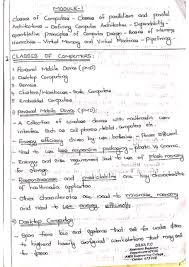 MODULE-1
Classes of Computers - Classes of parallelism and parallel
Architecture - Defining Computer Architecture - Dependability -
quantitative principles of Computer Design - Basics of Memory
Hierarchies - Virtual Memory and Virtual Machines - Pipelining
CLASSES OF COMPUTERS
1 Personal Mobile Device (PMD)
2 Desktop Computing
3 Servers
4 Clusters/Warehouse-Scale Computers
5 Embedded Computers
1) Personal Mobile Device (PMD)
A collection of wireless devices with multimedia user
interface such as cell phones, tablet computers etc
Energy efficiency driven by
need to use less expensive packaging
Energy and size requirement lead to use of flash memory
for storage
Responsiveness and predictability are key characteristics
of multimedia application
Other characteristics are need to minimize memory
and need to use energy efficiently
2) Desktop Computing
Span from low end systems that sell for under
to highend heavily configured workstations that may sell
for